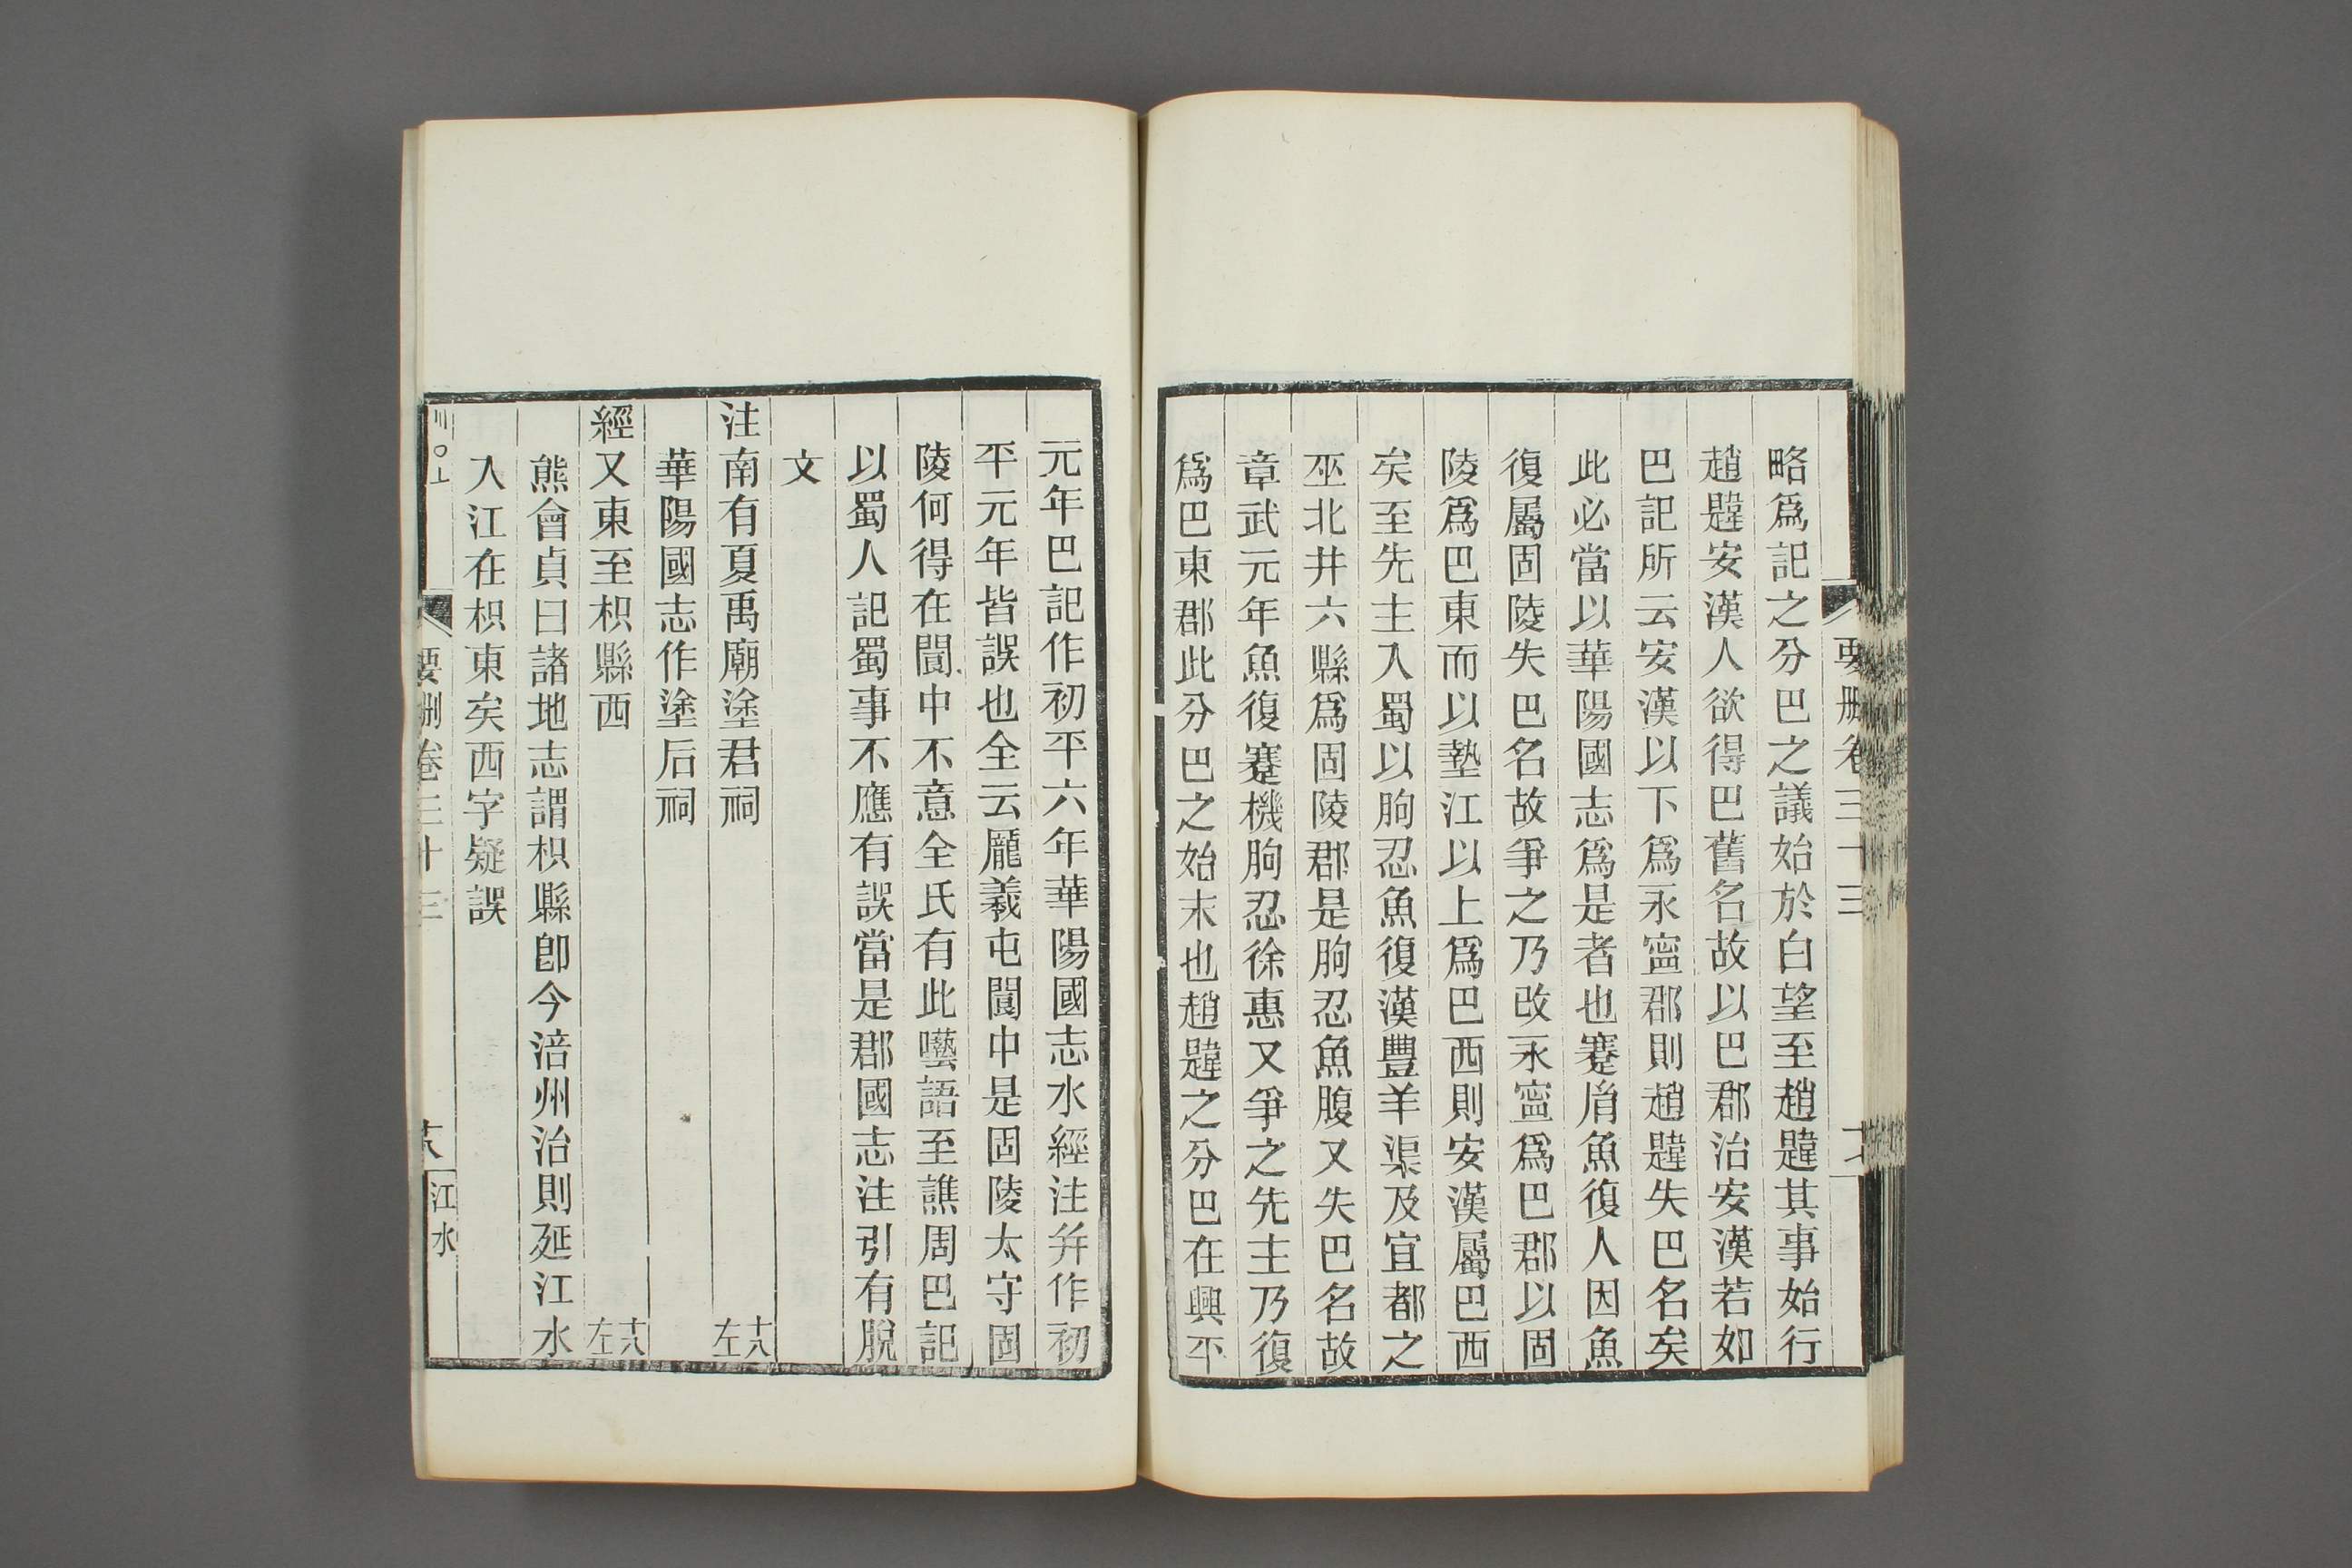 要刪卷三十三
略爲記之分巴之議始於白望至趙韙其事始行
趙韙安漢人欲得巴舊名故以巴郡治安漢若如
巴記所云安漢以下爲永寧郡則趙韙失巴名矣
此必當以華陽國志爲是者也蹇胤魚復人因魚
復屬固陵失巴名故爭之乃改永寧爲巴郡以固
陵爲巴東而以墊江以上爲巴西則安漢屬巴西
矣至先主入蜀以朐忍魚復漢豐羊渠及宜都之
巫北井六縣爲固陵郡是朐忍魚腹又失巴名故
章武元年魚復蹇機朐忍徐惠又爭之先主乃復
爲巴東郡此分巴之始末也趙韙之分巴在興平
元年巴記作初平六年華陽國志水經注并作初
平元年皆誤也全云龐羲屯閬中是固陵太守固
陵何得在閬中不意全氏有此囈語至譙周巴記
以蜀人記蜀事不應有誤當是郡國志注引有脫
文
注南有夏禹廟塗君祠 十八左
華陽國志作塗后祠
經又東至枳縣西 十八左
熊會貞曰諸地志謂枳縣卽今涪州治則延江水
入江在枳東矣西字疑誤
要刪卷三十三 十八 江水